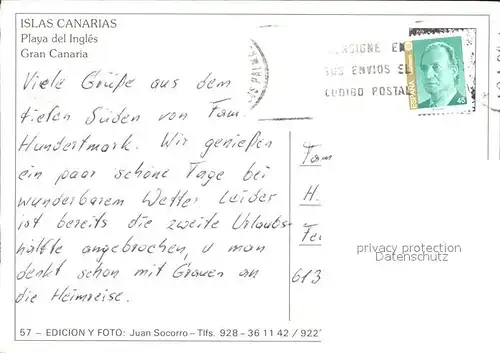 ISLAS CANARIAS
Playa del Inglês
Gran Canaria
CONSIGNE EN
SUS ENVIOS EL
CODIGO POSTAL
ESPAÑA
Viele Grüße aus dem
tiefen Süden von Fam.
Hundertmark. Wir genießen
ein paar schöne Tage bei
wunderbarem Wetter. Leider
ist bereits die zweite Urlaubs-
hälfte angebrochen, u man
denkt schon mit Grauen an
die Heimreise.
Fam
H.
613
privacy protection
Datenschutz
57 – EDICION Y FOTO: Juan Socorro – Tlfs. 928 - 36 11 42 / 922